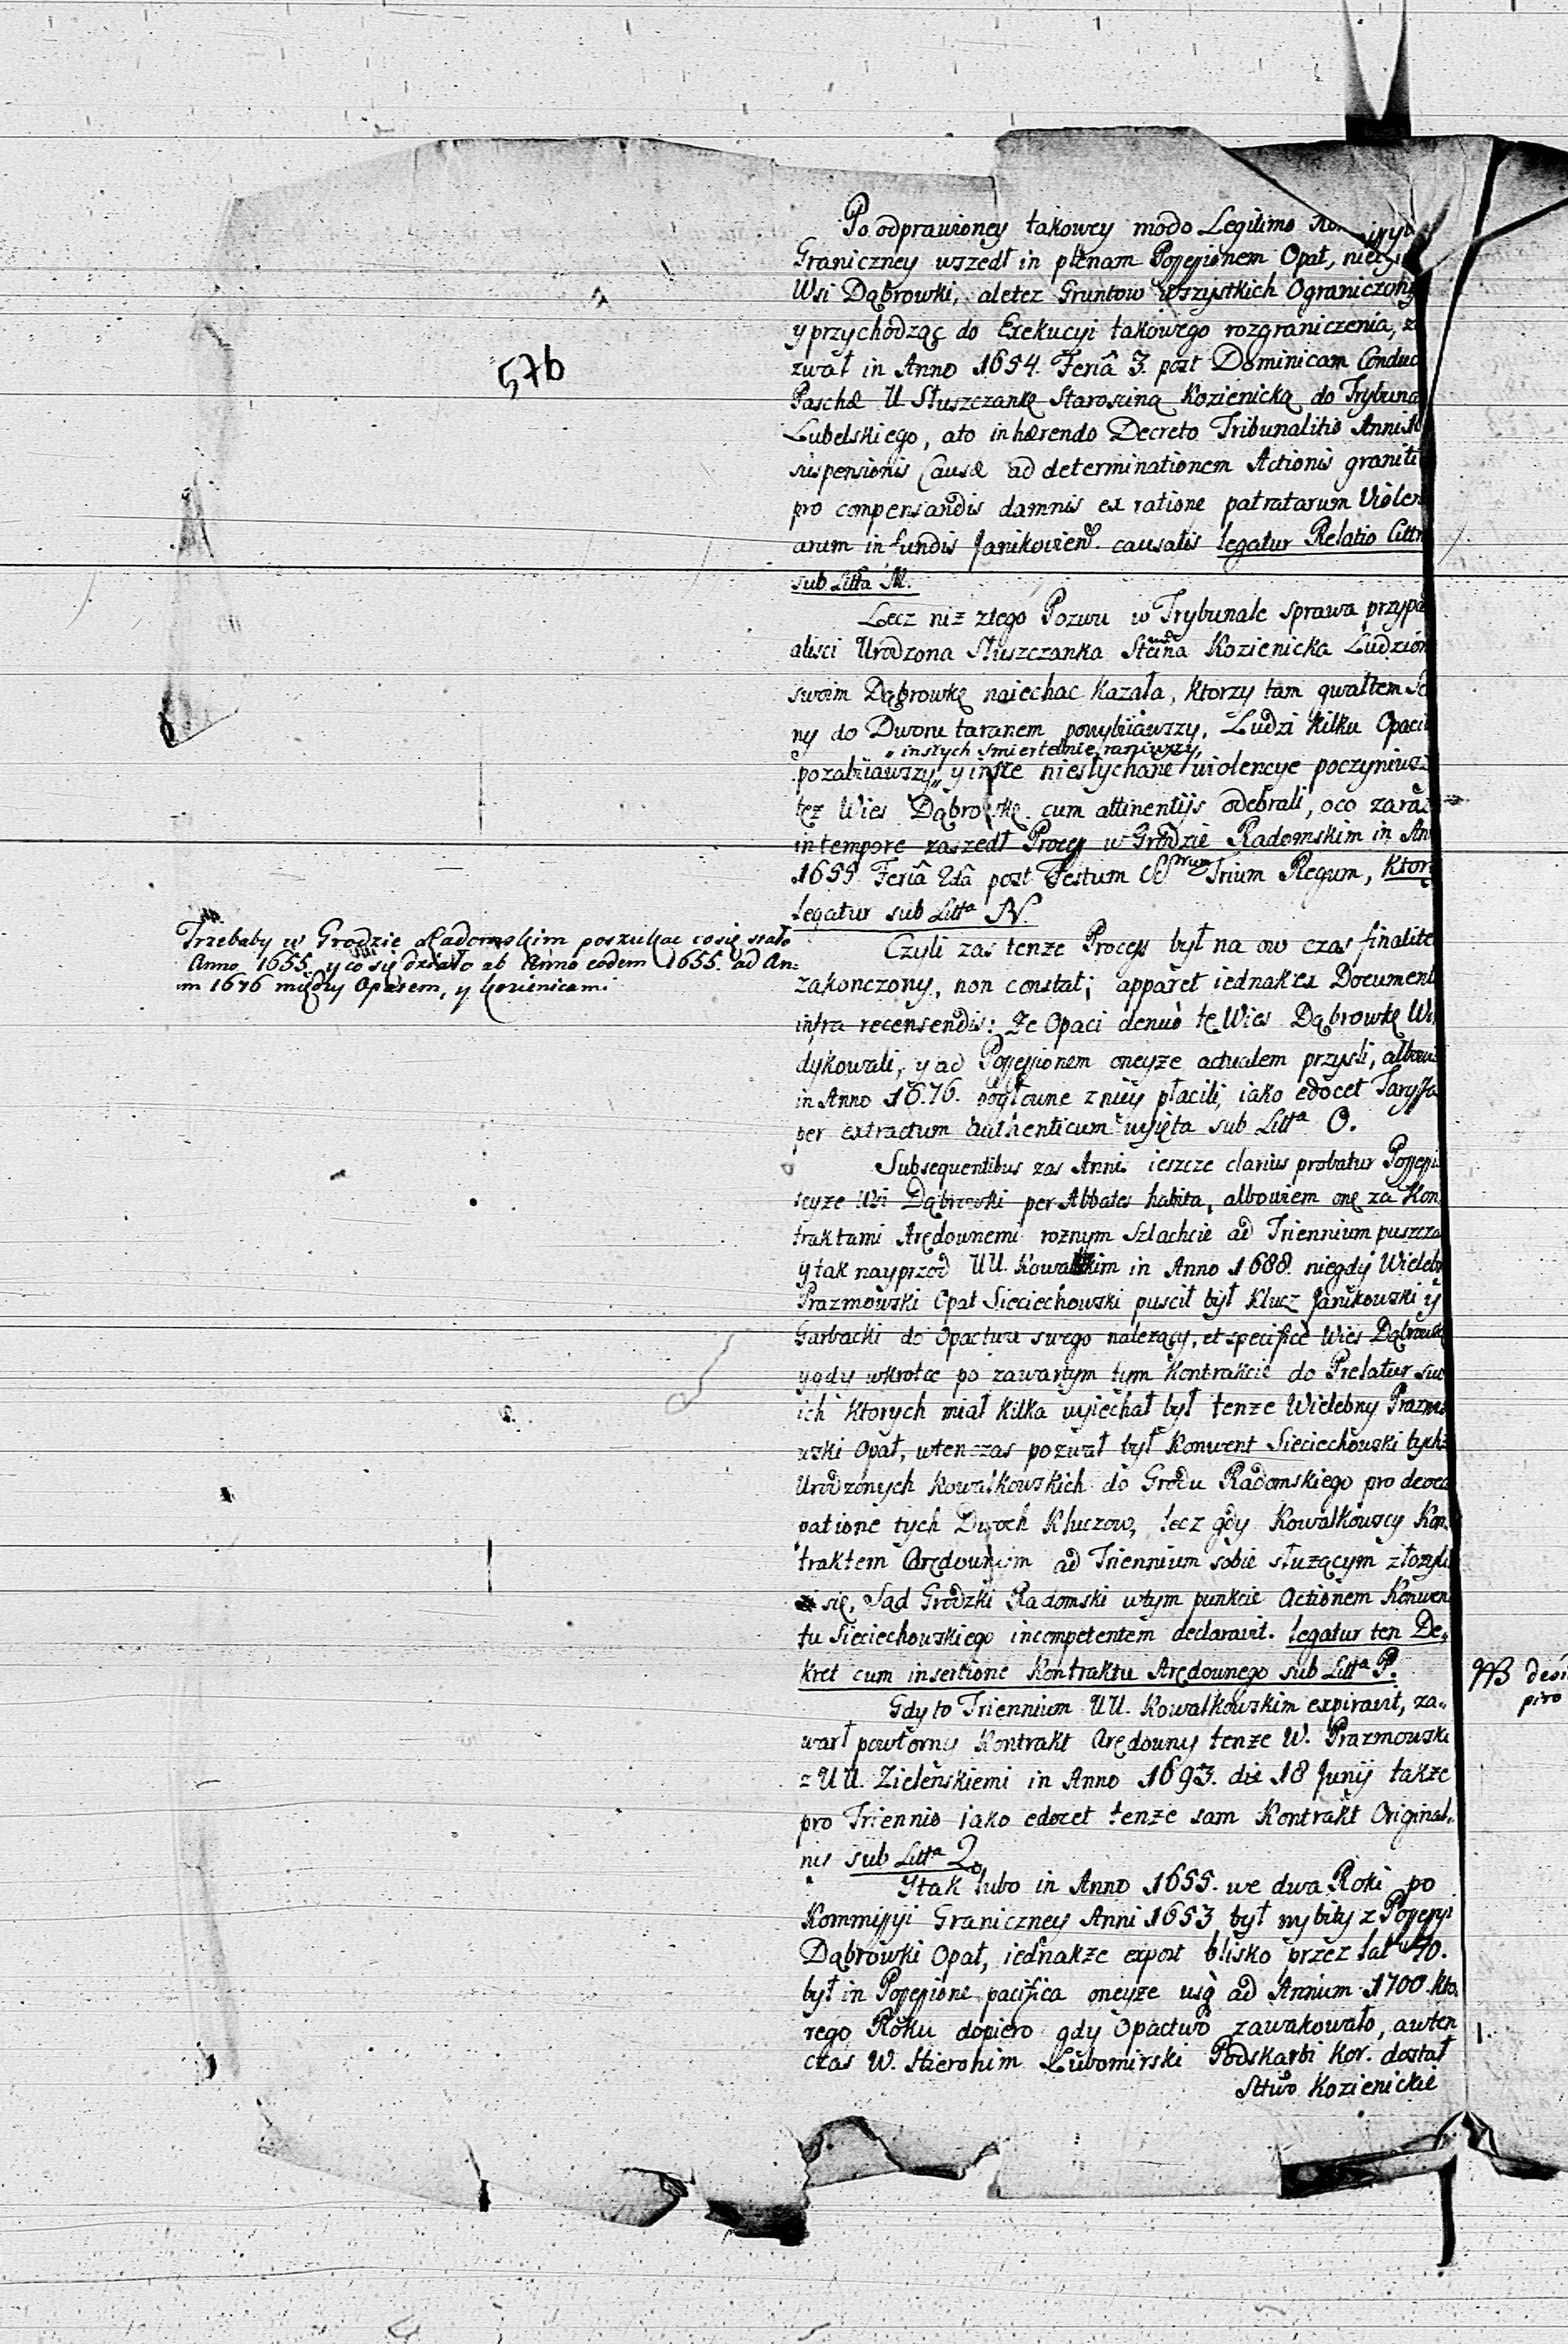 57b
Po odprawioney takowey modo Legitimo
Graniczney wszedł in plenam Possessionem Opat,
Wsi Dąbrowki, aletez Gruntow wszystkich Ograniczony
y przychodząc do Exekucyi takowego rozgraniczenia,
zwał in Anno 1654. Feriâ 3. post Dominicam Conduc
Paschæ U Słuszczankę Starosciną Kozienicką do Trybuna
Lubelskiego, ato inhærendo Decreto Tribunalitio
suspensionis Causæ ad determinationem Actionis graniti
pro compensandis damnis ex ratione patratarum Violen
arum in fundis Janikovien. causatis legatur Relatio Littr
sub Litta M.
Lecz niz ztego Pozwu w Trybunale sprawa przypa
alisci Urodzona Słuszczanka Stcina Kozienicka Ludziom
swoim Dąbrowkę naiechac kazała, ktorzy tam gwałtem
ny do Dworu taranem powybiiawszy, Ludzi kilku Opaci
" inszych smiertelnie raniwszy,
pozabiiawszy,, y insze niesłychane violencye poczyniwsz
tęz Wies Dąbrowkę cum attinentijs odebrali, oco zaraz
in tempore zaszedł Process w Grodzie Radomskim in An
1655 Feriâ 2dâ post Festum SSrum Trium Regum, Ktory
legatur sub Litta N.
Trzebaby w Grodzie Radomskim poszukac cosię stało
Anno 1655. y co się działo ab Anno eodem 1655. ad An:
m 1676 między Opatem, y Kozienicami.
Czyli zas tenze Process był na ow czas finalite
zakonczony, non constat; apparet iednak ex Document
infra recensendis: Ze Opaci denuo tę Wies Dąbrowkę Wi
dykowali, y ad Possessionem oneyze actualem przysli,
in Anno 1676. pogłowne z niey płacili, iako edocet Taryffa
per extractum authenticum wyięta sub Litta O.
Subsequentibus zas Annis ieszcze clarius probatur Possessi
teyze Wsi Dąbrowki per Abbates habita, albowiem onę za Kon
traktami Arędownemi roznym Szlachcie ad Triennium puszcza
y tak nayprzod UU. Kowalskim in Anno 1688. niegdy Wielebn
Prazmowski Opat Sieciechowski puscił był Klucz Janikowski y
Garbacki do Opactwa swego nalezący, et specificè Wies Dąbrowkę
y gdy wkrotce po zawartym tym Kontrakcie do Prelatur swo
ich ktorych miał kilka wyiechał był tenze Wielebny Prazmo
wski Opat, wtenczas pozwał był Konwent Sieciechowski tychz
Urodzonych Kowalkowskich do Grodu Radomskiego pro deoccu
patione tych Dwoch Kluczow, lecz gdy Kowalkowscy Kon,
traktem Arędownym ad Triennium sobie słuzącym złozyli
się, Sąd Grodzki Radomski wtym punkcie Actionem Konwen
tu Sieciechowskiego incompetentem declaravit. legatur ten De,
kret cum insertione Kontraktu Arędownego sub Litta P.
Gdy to Triennium UU. Kowalkowskim expiravit, za,,
warł powtorny Kontrakt Arędowny tenze W. Prazmowski
z UU. Zielenskiemi in Anno 1693. die 18 Junij takze
pro Triennio iako edocet tenze sam Kontrakt Original,,
ny sub Litta Q.
Ytak lubo in Anno 1655. we dwa Roki po
Kommissyi Graniczney Anni 1653 był wybity z Possessyi
Dąbrowki Opat, iednakze expost blisko przez lat 40.
był in Possessione pacifica oneyze usq ad Annum 1700. Kto,
rego Roku dopiero gdy Opactwo zawakowało, awten
czas W. Hieronim Lubomirski Podskarbi Kor. dostał
Sttwo Kozienickie
NB